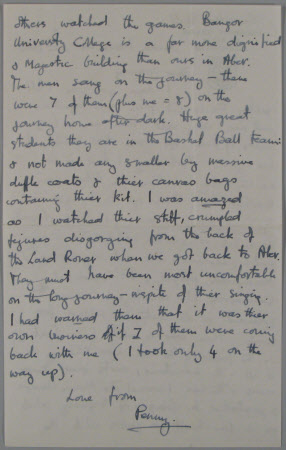 others watched the games. Bangor
University College is a far more dignified
& Majestic building than ours in Aber.
The men sang on the journey – there
were 7 of them (plus me = 8) on the
journey home after dark. Huge great
students they are in the Basket Ball team
& not made any smaller by massive
duffle coats & thier canvas bags
containing thier kit. I was amazed
as I watched thier stiff, crumpled
figures disgorging from the back of
the Land Rover when we got back to Aber.
They must have been most uncomfortable
on the long journey – inspite of thier singing.
I had warned them that it was thier
own if 7 of them were coming
back with me (I took only 4 on the
way up).
Love from
Penny.